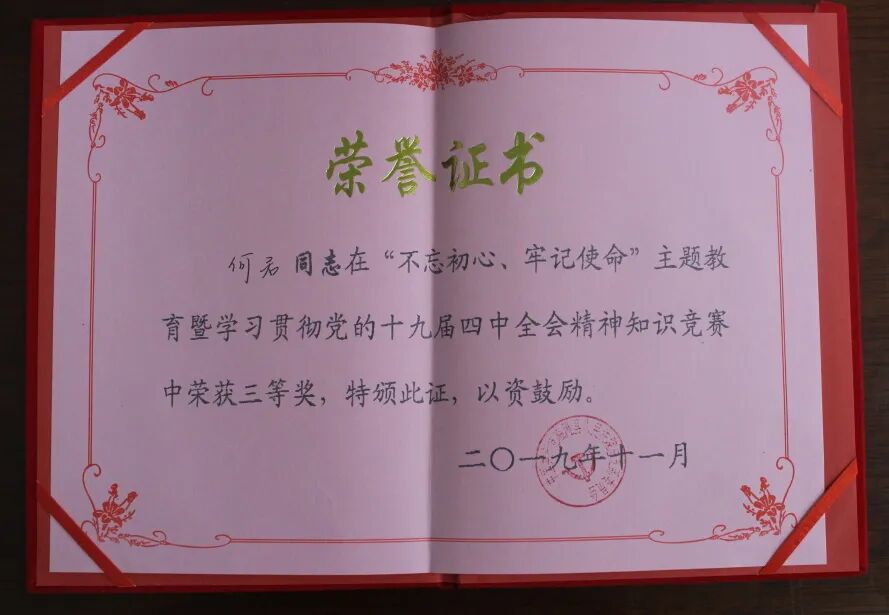 荣誉证书
何君 同志在“不忘初心、牢记使命”主题教
育暨学习贯彻党的十九届四中全会精神知识竞赛
中荣获三等奖，特颁此证，以资鼓励。
二〇一九年十一月